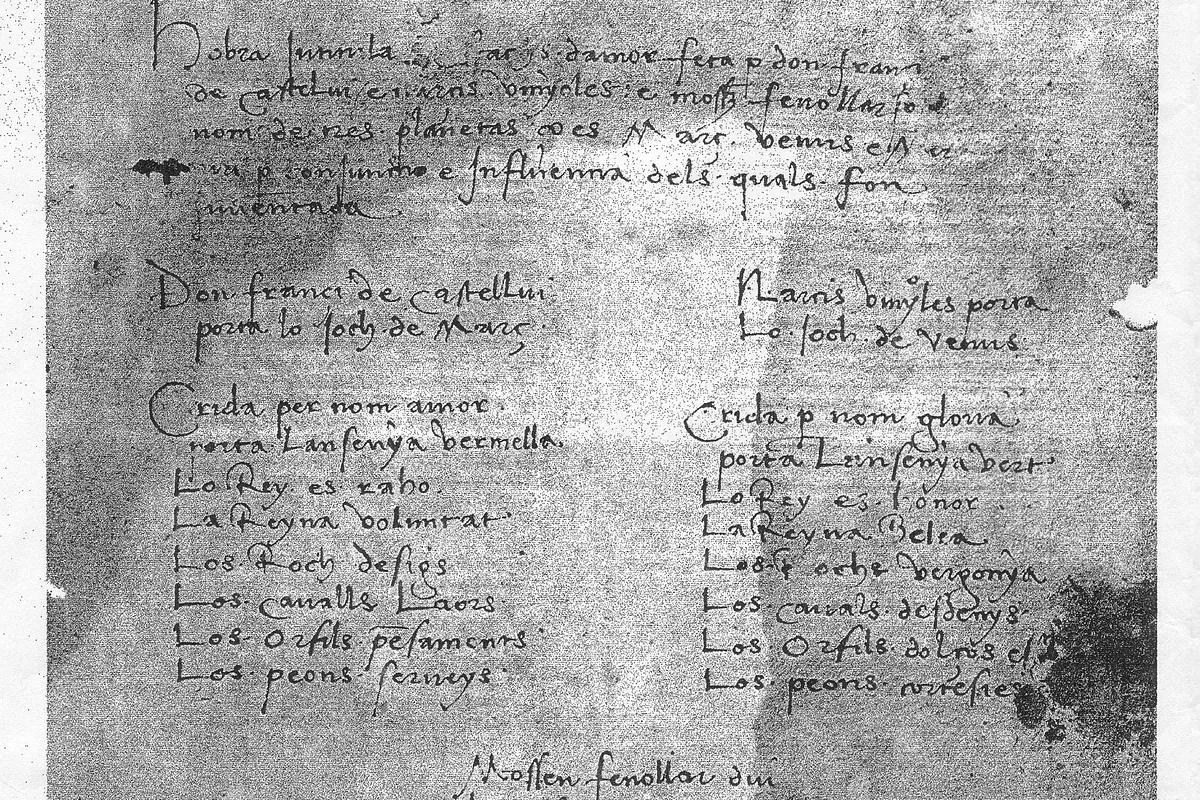 hobra Jnnnla dels escachs damor feta p don franci
de castellui e narcis vinyoles e mossen fenollar so
nom de tres planetas ço es Març. Venus e Mer
curi p conjunctio e Jnfluencia dels quals fon
jnuentada
Don franci de castellui
porta lo Joch de Març
Narcis vinyoles porta
Lo Joch de Venus
Crida per nom amor
porta Lansenya vermella.
Lo Rey es raho.
La Reyna voluntat
Los Roch desigs
Los caualls Laors
Los Orfils pesaments
Los peons serueys
Crida p nom gloria
porta Lansenya vert
Lo Rey es honor
La Reyna Belea
Los Rochs vergonya
Los cauals desdenys
Los Orfils dolços
Los peons cortesies
Mossen fenollar diu